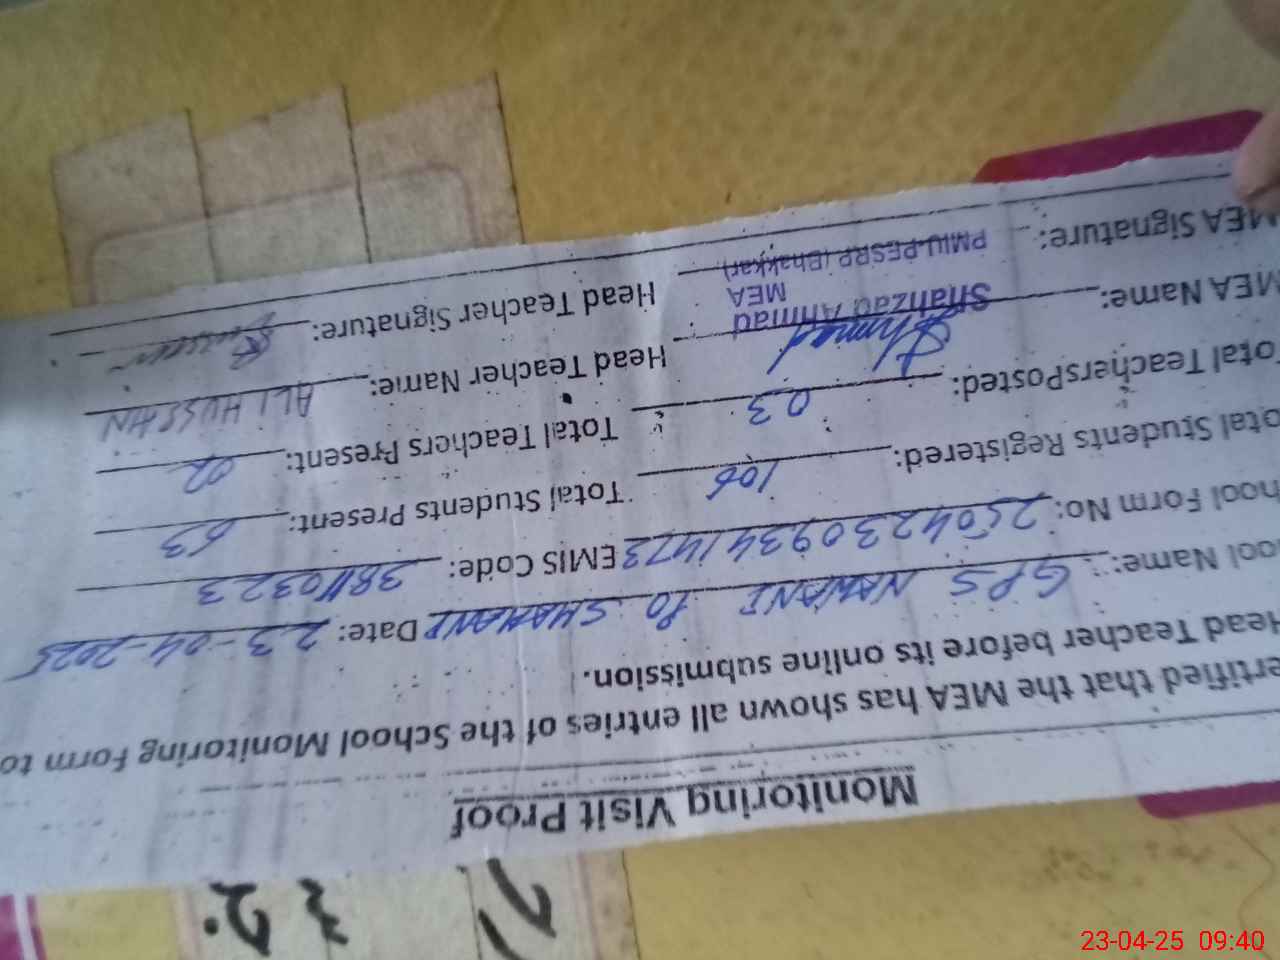 Monitoring Visit Proof
ertified that the MEA has shown all entries of the School Monitoring Form to
Head Teacher before its online submission.
ool Name: GPS NAWANI PO SHAHANI Date: 23-04-2025
hool Form No: 25042309341473 EMIS Code: 38110323
otal Students Registered: 106 Total Students Present: 63
otal TeachersPosted: 03 Total Teachers Present: 02
MEA Name: Shahzad Ahmad Head Teacher Name: ALI HUSSAIN
MEA
MEA Signature: PMIU-PESRP (Bhakkar) Head Teacher Signature:
Ahmad
23-04-25 09:40